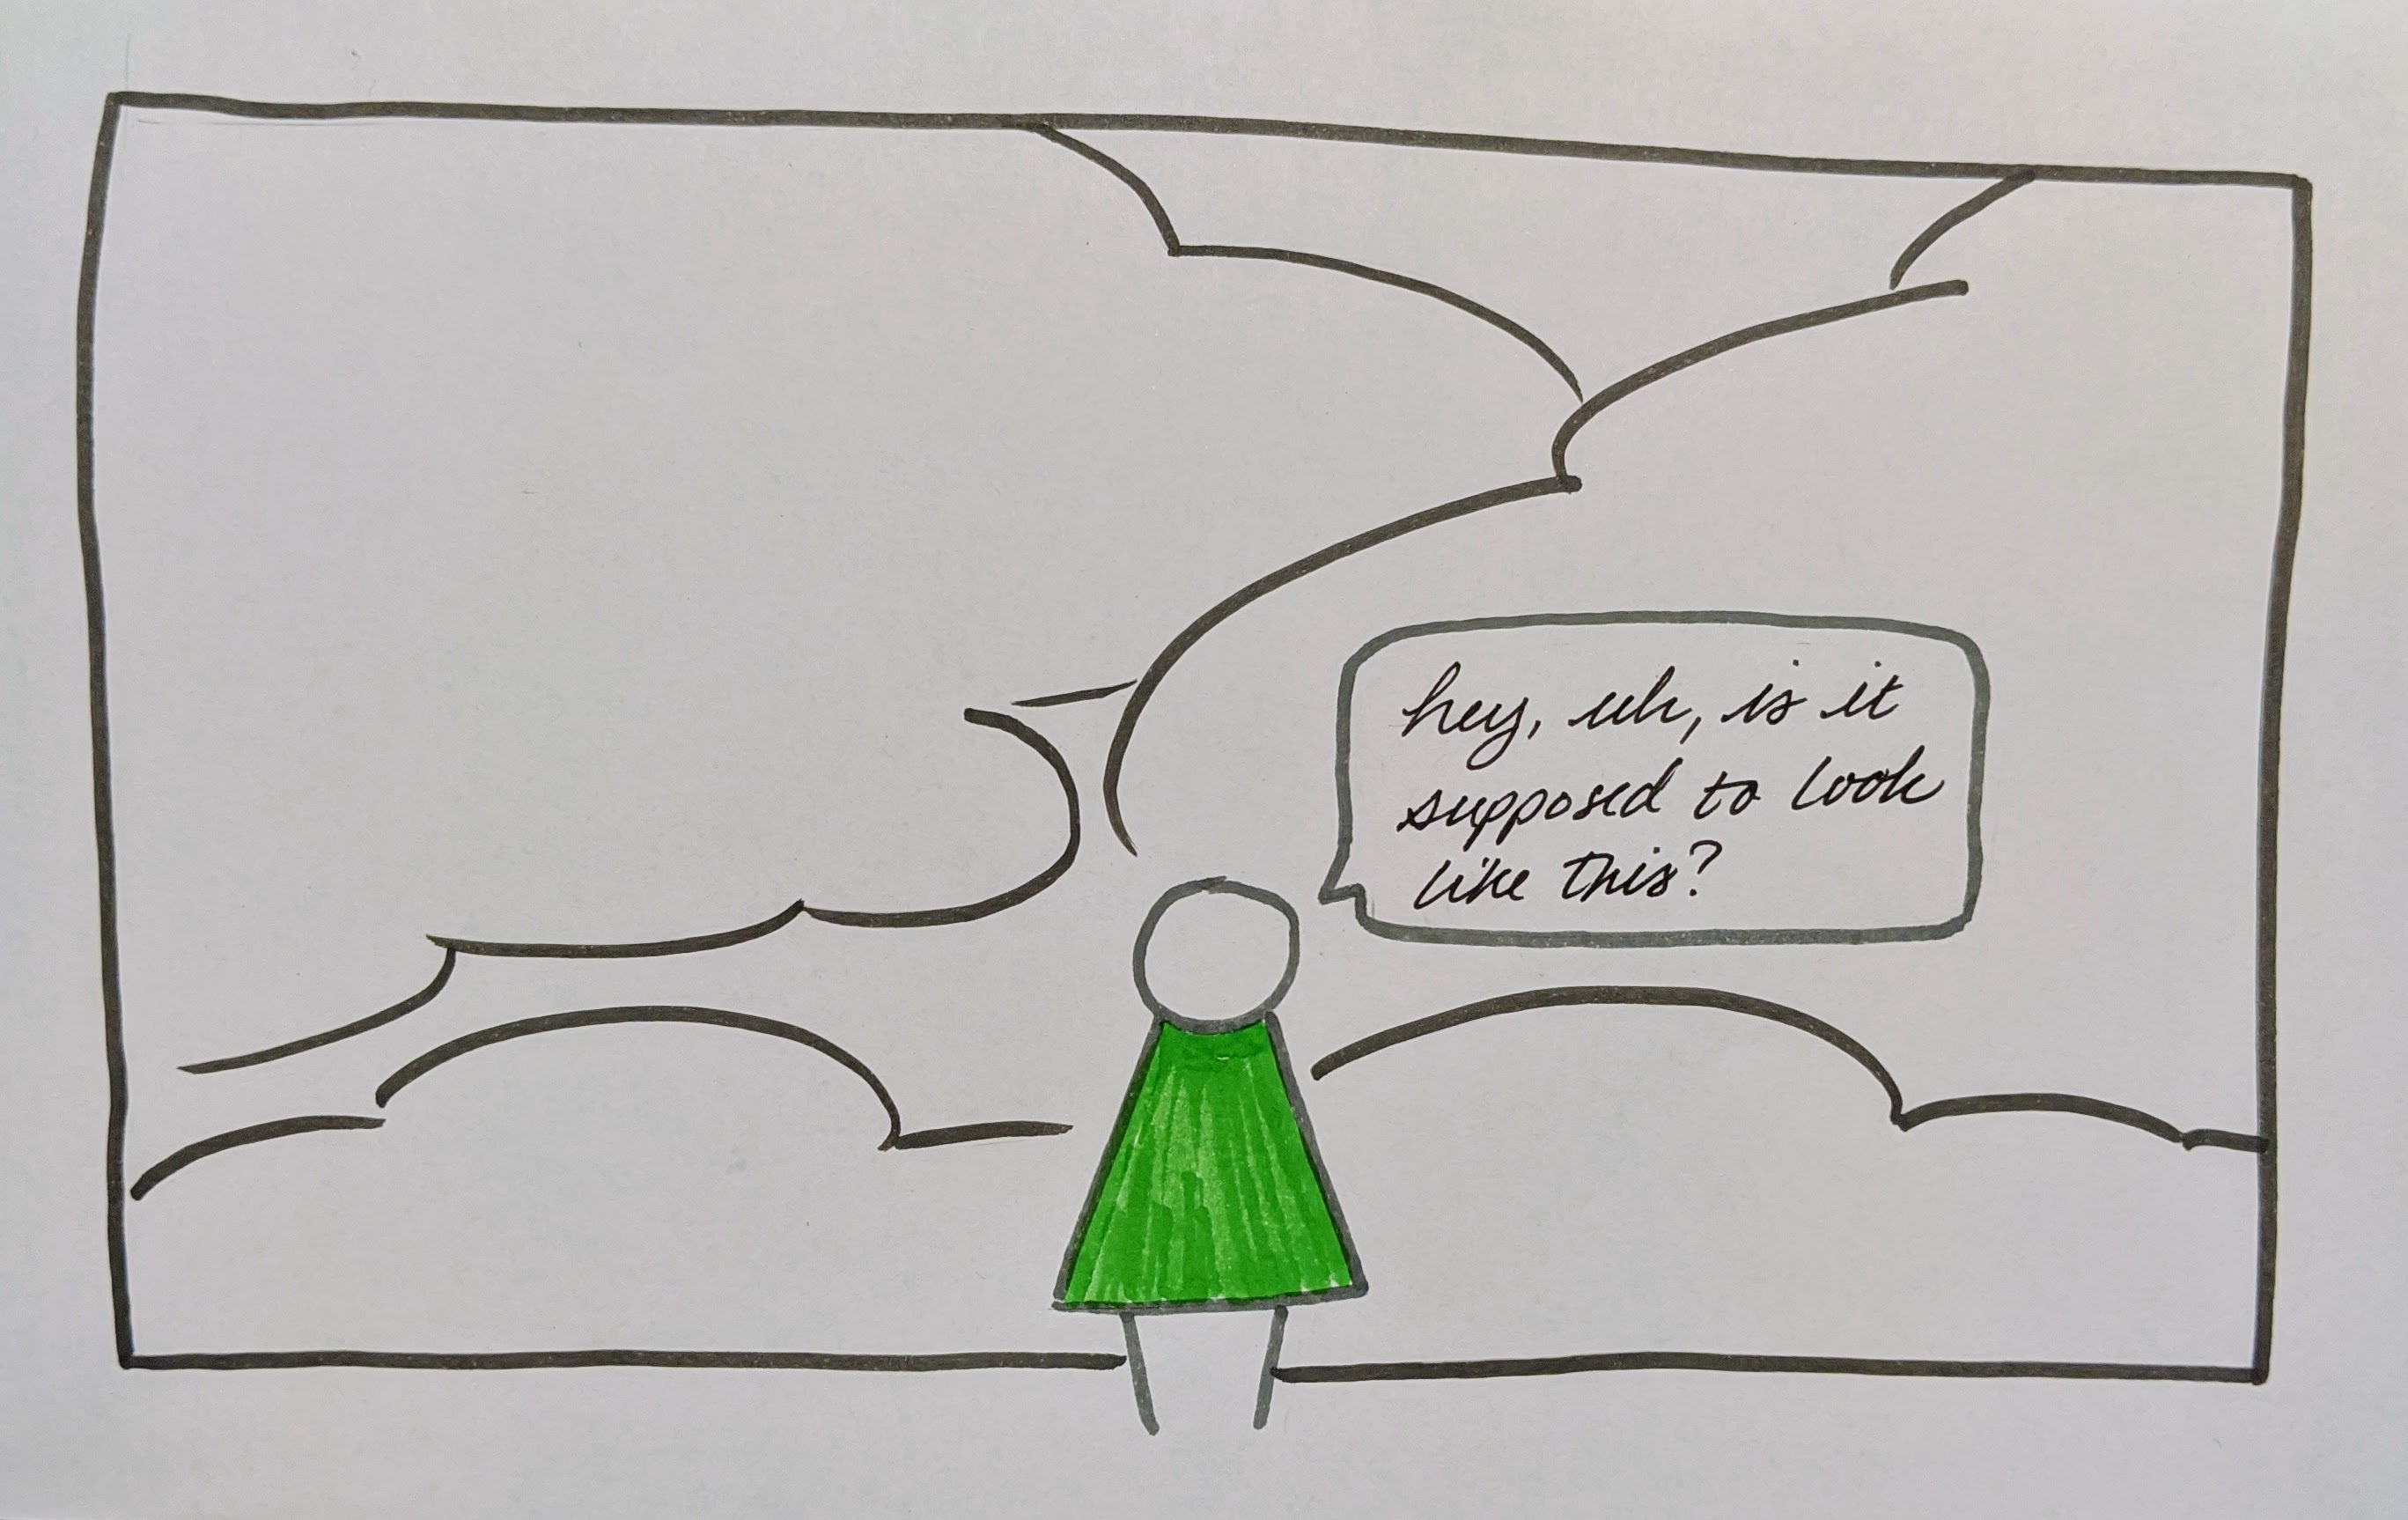 hey, uh, is it
supposed to look
like this?